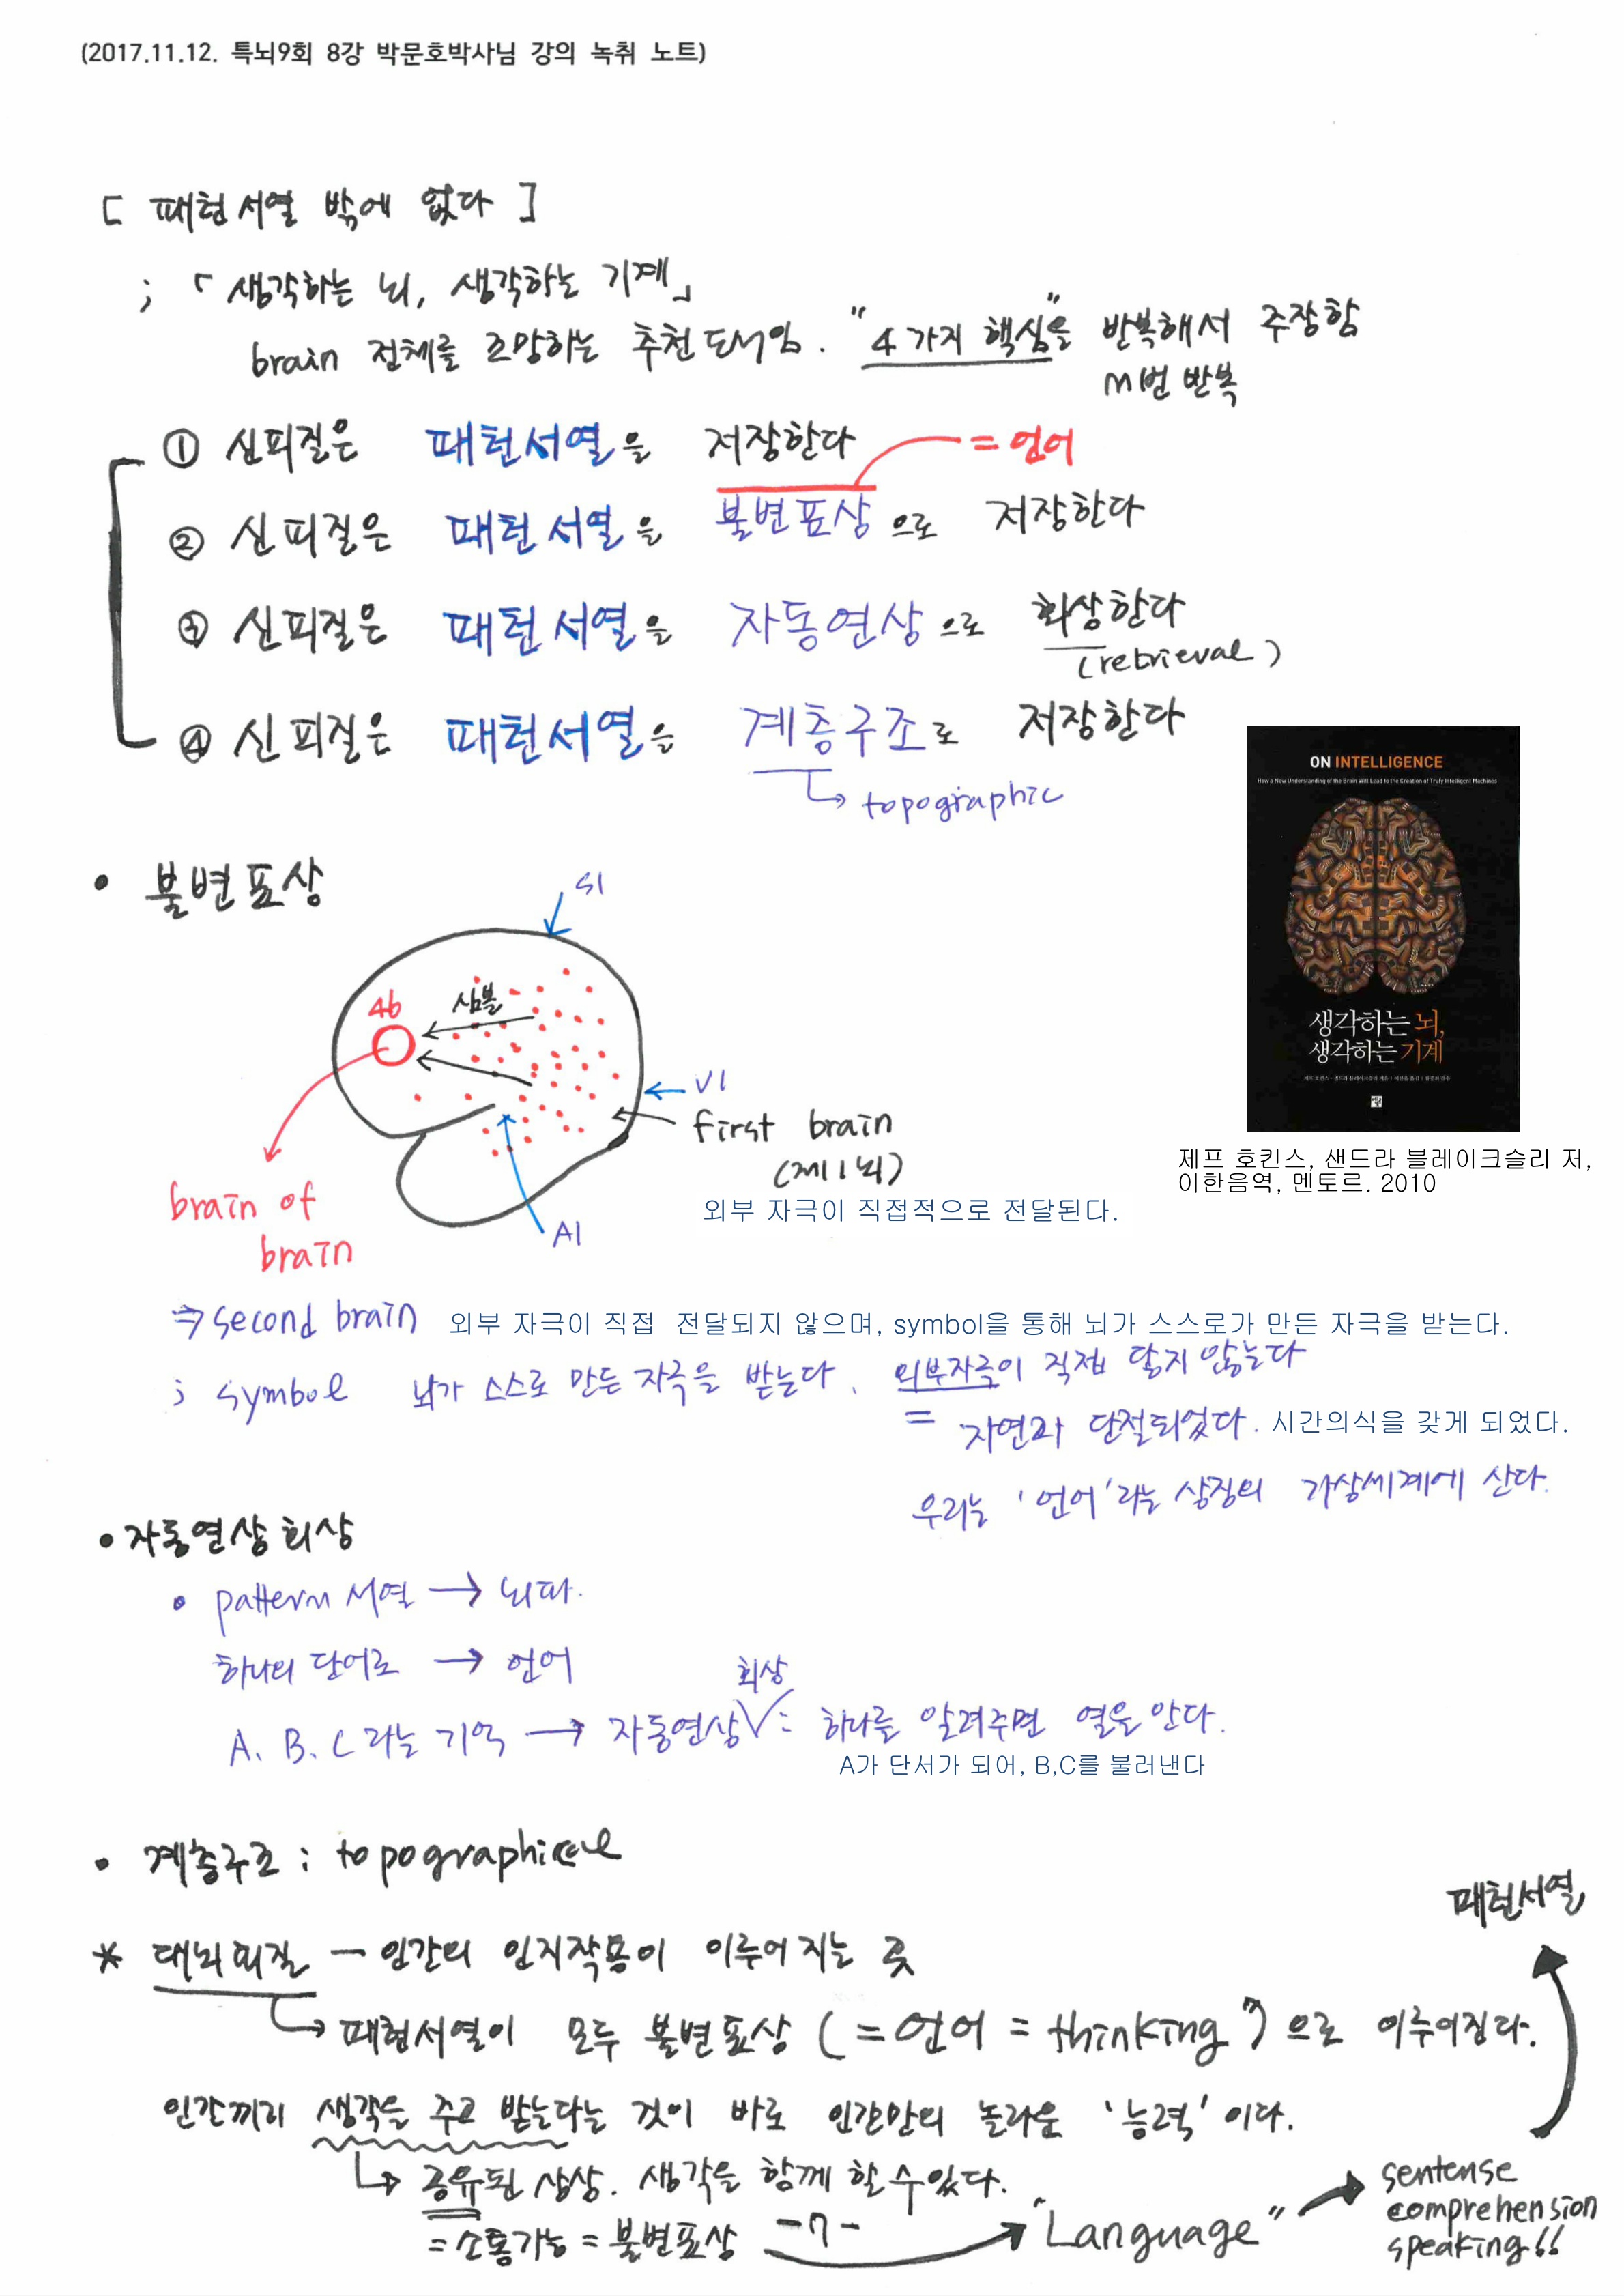 (2017.11.12. 특뇌9회 8강 박문호박사님 강의 녹취 노트)
[ 패턴서열 밖에 없다 ]
; 「생각하는 뇌, 생각하는 기계」
brain 전체를 조망하는 추천도서임. "4가지 핵심"을 반복해서 주장함
m번 반복
① 신피질은 패턴서열을 저장한다
= 언어
② 신피질은 패턴서열을 불변표상으로 저장한다
③ 신피질은 패턴서열을 자동연상으로 회상한다
(retrieval)
④ 신피질은 패턴서열을 계층구조로 저장한다
↳ topographic
ON INTELLIGENCE
How a New Understanding of the Brain Will Lead to the Creation of Truly Intelligent Machines
생각하는 뇌,
생각하는 기계
제프 호킨스, 샌드라 블레이크슬리 저,
이한음역, 멘토르. 2010
• 불변표상
S1
46
심볼
V1
first brain
(제1뇌)
외부 자극이 직접적으로 전달된다.
A1
brain of
brain
⇒ second brain 외부 자극이 직접 전달되지 않으며, symbol을 통해 뇌가 스스로가 만든 자극을 받는다.
; symbol 뇌가 스스로 만든 자극을 받는다. 외부자극이 직접 닿지 않는다
= 자연과 단절되었다. 시간의식을 갖게 되었다.
우리는 '언어'라는 상징의 가상세계에 산다.
• 자동연상 회상
• pattern 서열 → 뇌파.
하나의 단어로 → 언어
회상
A. B. C 라는 기억 → 자동연상∨: 하나를 알려주면 열을 안다.
A가 단서가 되어, B,C를 불러낸다
• 계층구조 : topographical
패턴서열
* 대뇌피질 — 인간의 인지작용이 이루어지는 곳
↳ 패턴서열이 모두 불변표상 (= 언어 = thinking") 으로 이루어진다.
인간끼리 생각을 주고 받는다는 것이 바로 인간만의 놀라운 '능력'이다.
↳ 공유된 상상. 생각을 함께 할 수 있다.
= 소통가능 = 불변표상
-7-
"Language"
sentense
comprehension
speaking!!